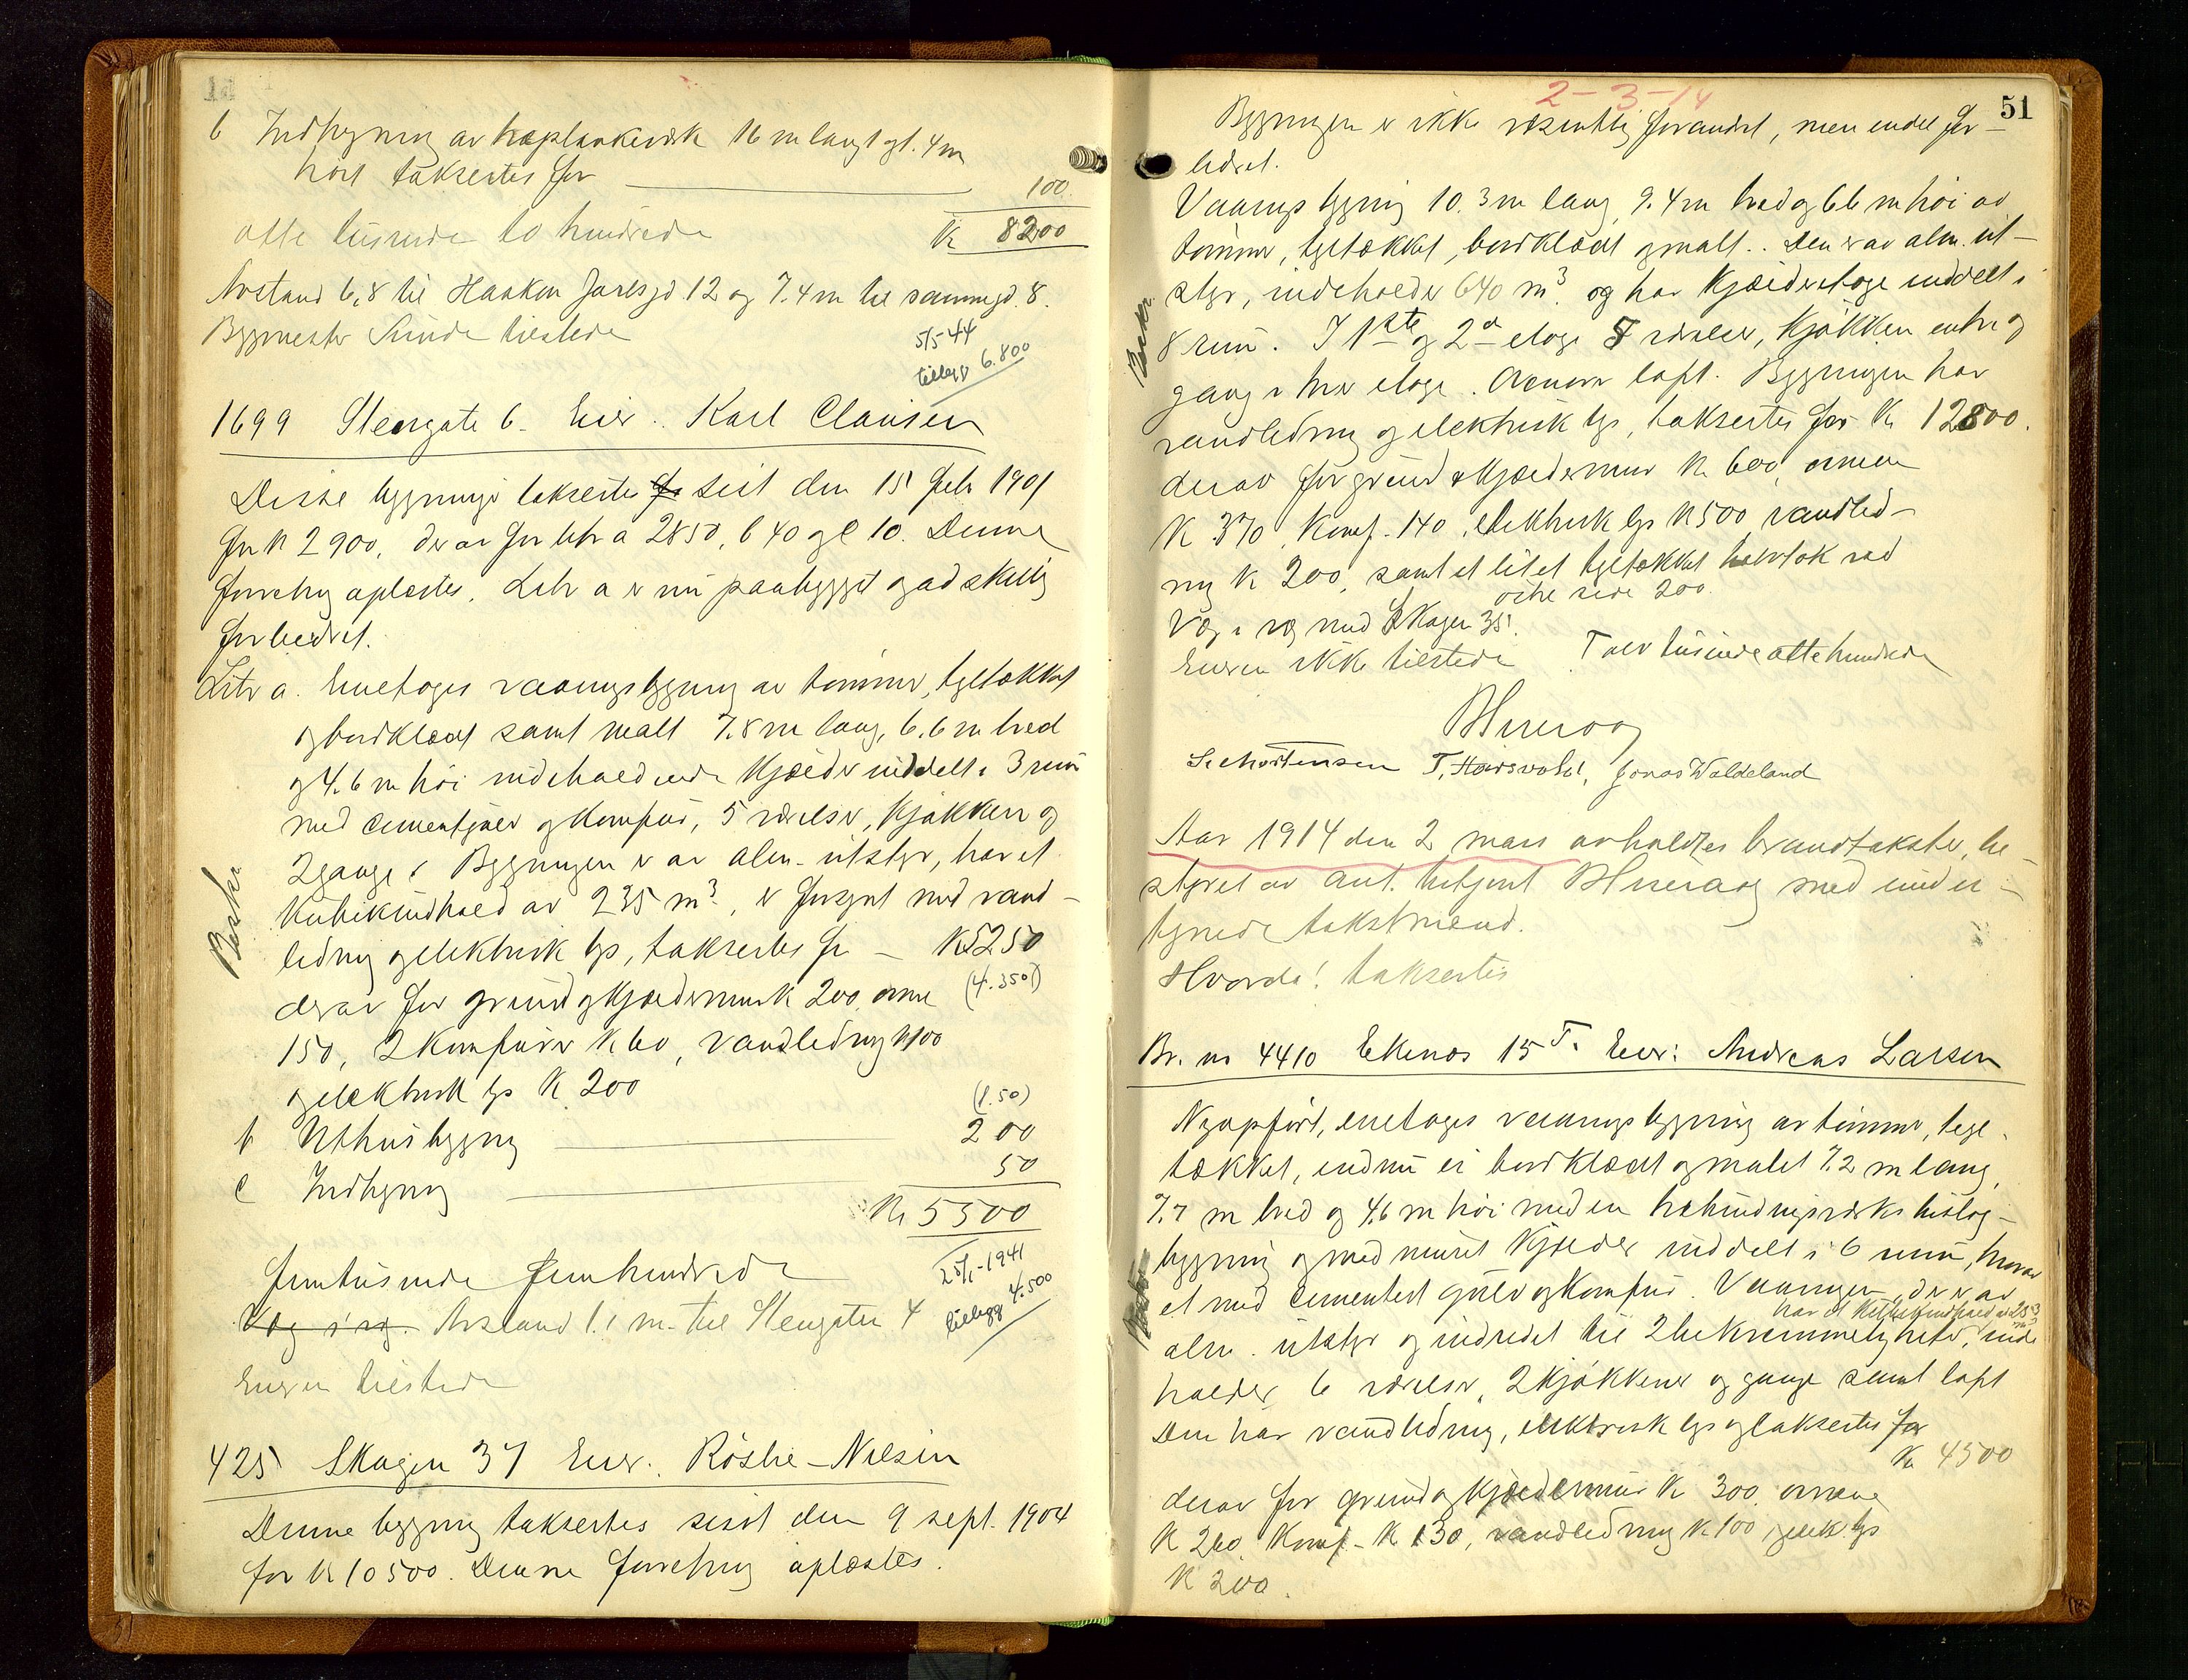 b Indhegning av træplankeverk 16 m langt og 1.4 m
høit taksertes for 100.
otte tusinde to hundrede Kr 8200
Avstand 6,8 til Haakon Jarlsgd. 12 og 7.4 m til sammegd. 8.
Bygmester Sunde tilstede
5/5-44
tillegg 6.800
1699 Steengate 6. Eier. Karl Clausen
Disse bygninger taksertes sist den 15 Febr 1901
for K 2900, derav for litr a 2850, b 40 og c 10. Denne
forretning oplæstes. Litr a er nu paabygget og adskillig
forbedret.
Litr a. Enetages vaaningsbygning av tømmer, tegltækket
og bordklædt samt malt 7.8 m lang, 6.6 m bred
og 4.6 m høi indeholdende kjælder inddelt i 3 rum
med cementgulv og komfur, 5 værelser, kjøkken og
2 gange. Bygningen er av alm. utstyr, har et
Kubikindhold av 235 m³, er forsynt med vand-
ledning og elektrisk lys, taksertes for – K 5250
(4.350)
derav for grund og kjældermur K 200, ovne
150, 2 komfurer K 60, vandledning K 100
og elektrisk lys K 200
(150)
b Uthusbygning 200
c Indhegning 50
Kr 5500
femtusinde femhundrede
25/1-1941
tillegg 4.500
Væg i væg. Avstand 1.1 m. til Steengaten 4
Eieren tilstede
425 Skagen 37 Eier. Røslie-Nilsen
Denne bygning taksertes sist den 9 sept. 1904
for Kr 10500. Denne forretning oplæstes.
2-3-14
51
Bygningen er ikke væsentlig forandret, men endel for-
bedret.
Vaaningsbygning 10.3 m lang, 9.4 m bred og 6.6 m høi av
tømmer, tegltækket, bordklædt og malt. Den er av alm. ut-
styr, indeholder 640 m³ og har Kjælderetage inddelt i
8 rum. I 1ste og 2den etage 5 værelser, kjøkken entre og
gang i hver etage. Ovenover loft. Bygningen har
vandledning og elektrisk lys, taksertes for Kr 12800.
derav for grund & kjældermur K 600, ovnene
K 370, Komf. 140, elektrisk lys K 500 vandled-
ning K 200, samt et litet tegltækket halvtak ved
østre side 200.
Væg i væg med Skagen 35.
Eieren ikke tilstede Tolv tusinde otte hundrede
S. Mortensen T. Haarsvold, Jonas Waldeland
Aar 1914 den 2 mars avholdtes brandtakster, be-
styret av aut. betjent med under-
tegnede takstmænd.
Hvorda! taksertes
Br. no 4410 Ekenæs 15 T. Eier: Andreas Larsen
Nyopført, enetages vaaningsbygning av tømmer, tegl-
tækket, endnu ei bordklædt og malet 7.2 m lang,
7.7 m bred og 4.6 m høi med en træbindingsverks bislag-
bygning og med muret Kjælder inddelt i 6 rum, hvorav
et med cementert gulv og komfur. Vaaningen, der er av
har et kubikindhold av 253 m³
alm. utstyr og indredet til 2 bekvemmeligheter, inde
holder 6 værelser, 2 kjøkkener og gange samt loft
Den har vandledning, elektrisk lys og taksertes for
Kr 4500
derav for grund og kjældermur K 300, ovnene
K 260, Komf. K 130, vandledning K 100, og elek. lys
K 200.